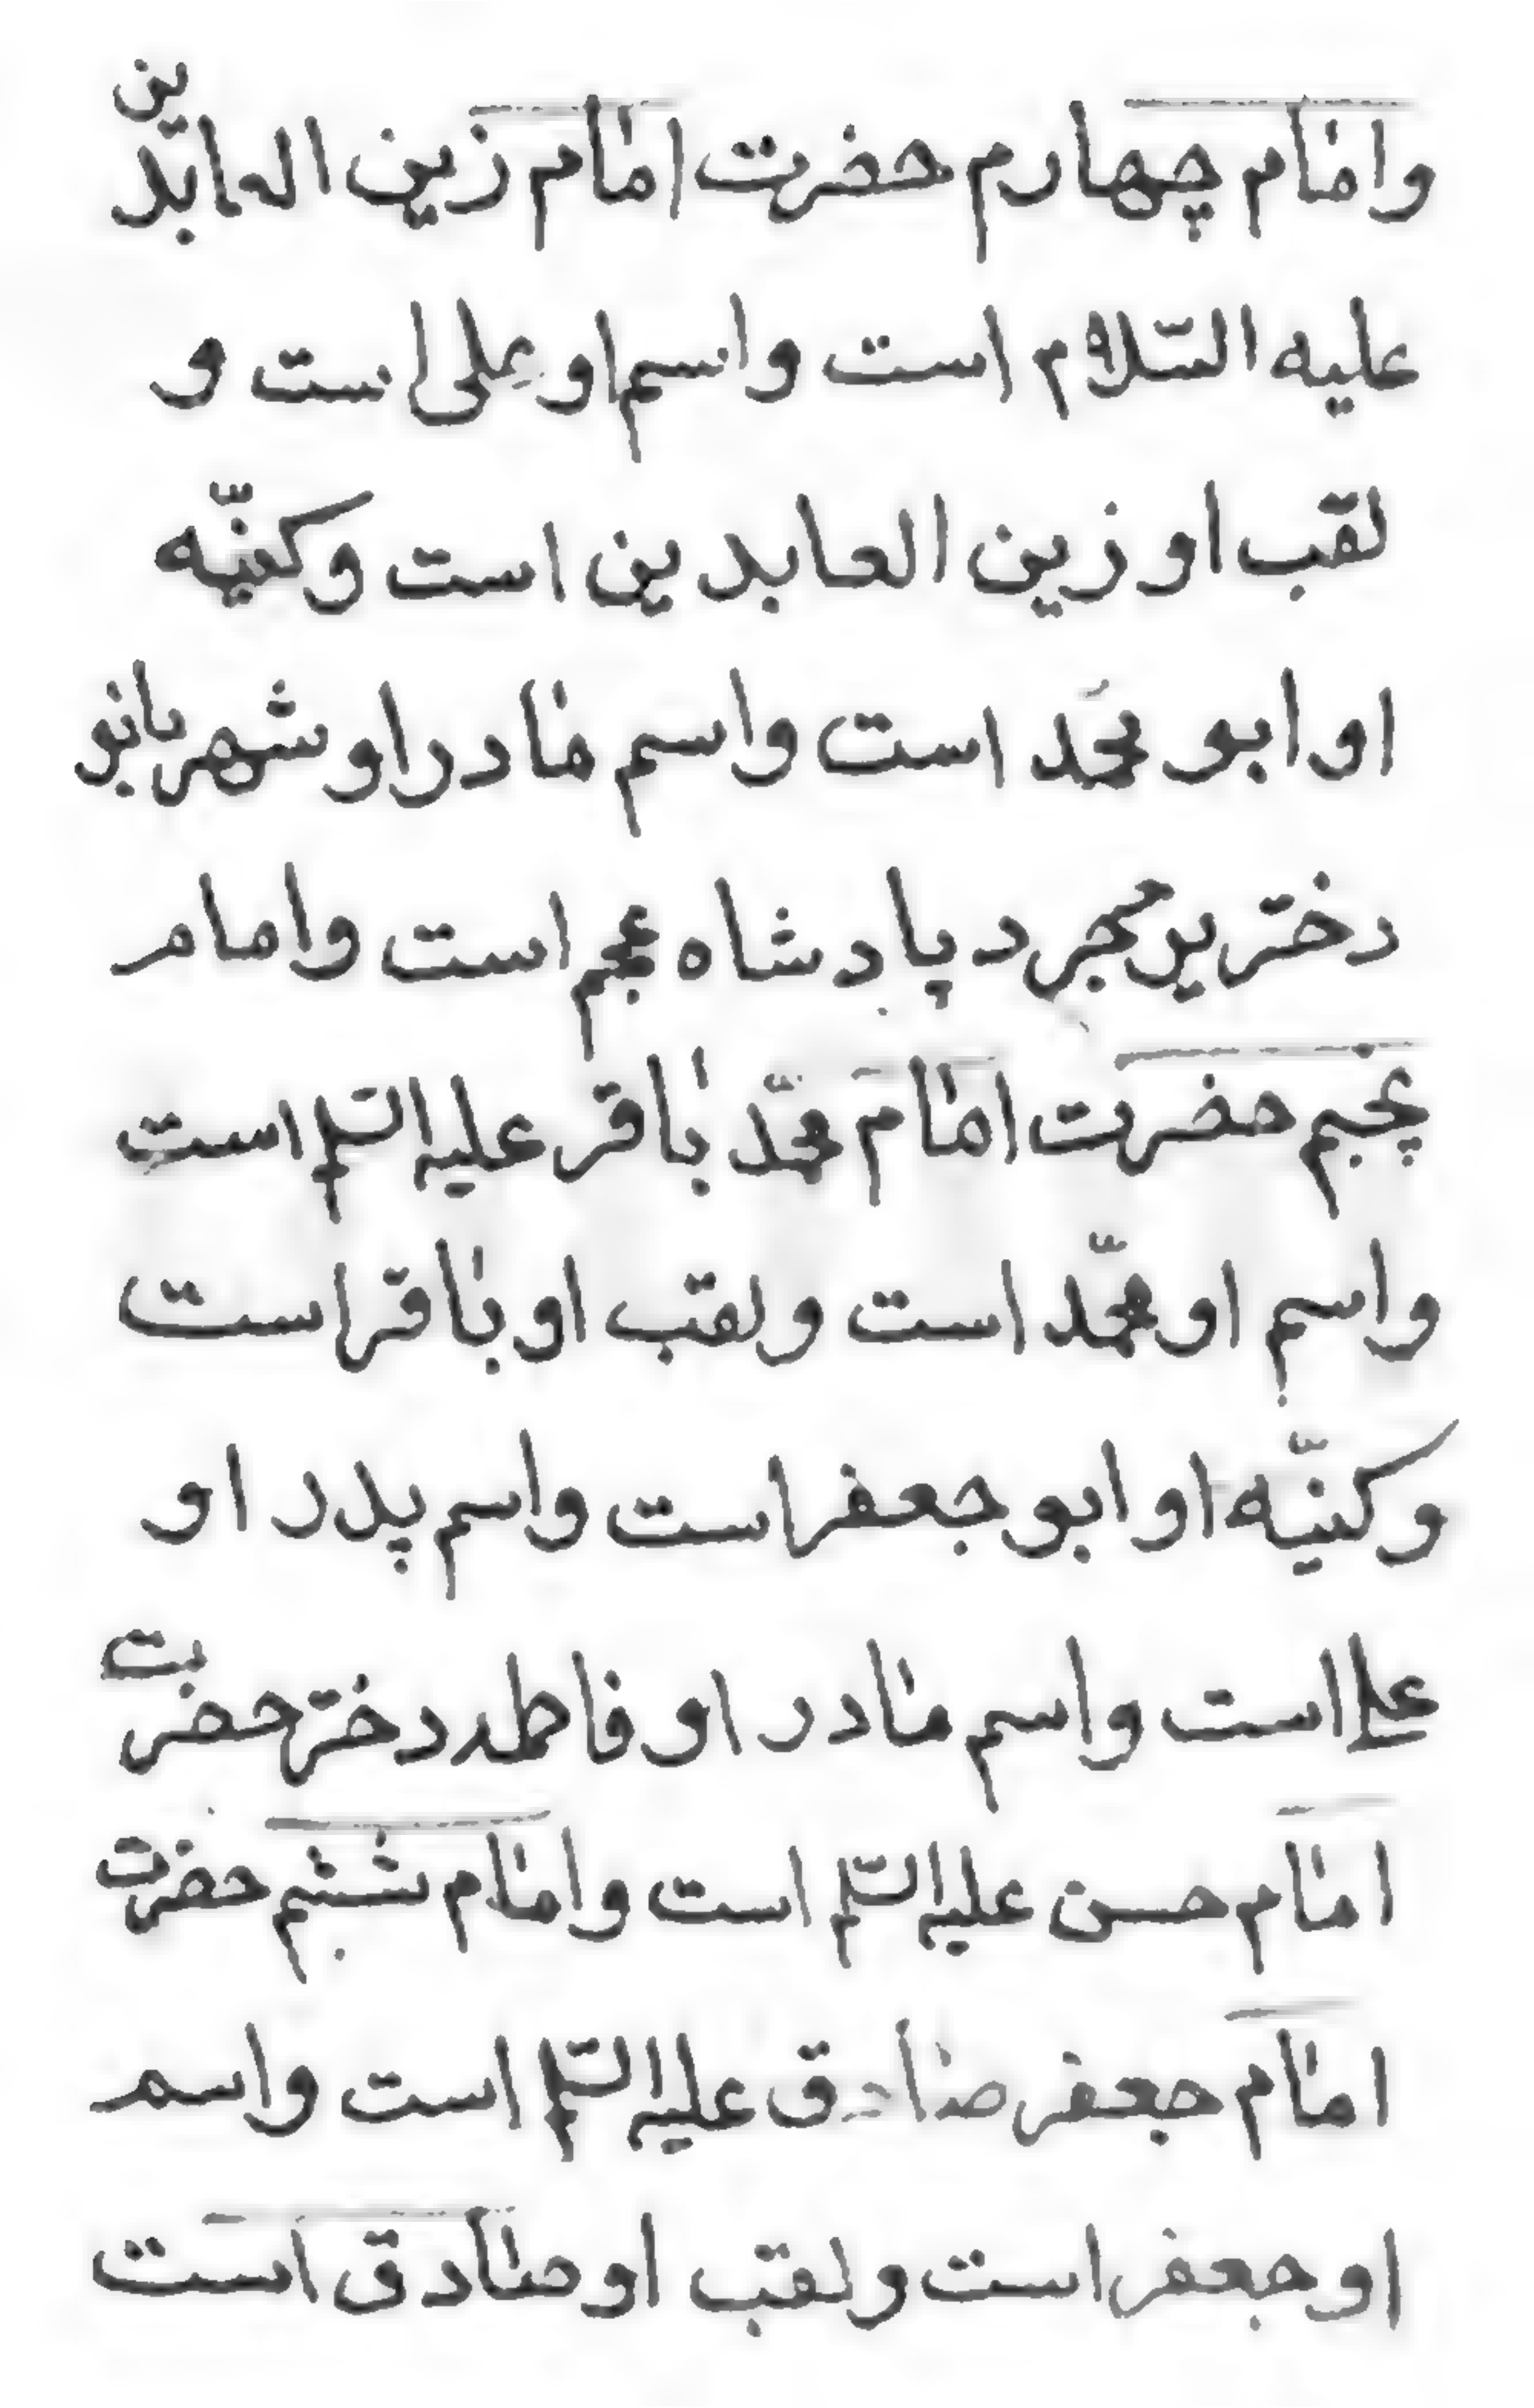 وامام چهارم حضرت امام زین العابدین
علیه السّلام است واسم او علی است و
لقب او زین العابدین است وکنیّه
او ابو محمد است واسم مادر او شهربانو
دختر یزدجرد پادشاه عجم است وامام
پنجم حضرت امام محمّد باقر علیه السلم است
واسم او محمّد است ولقب او باقر است
وکنیّه او ابو جعفر است واسم پدر او
علی است واسم مادر او فاطمه دختر حضرت
امام حسن علیه السلم است وامام ششم حضرت
امام جعفر صادق علیه السلم است واسم
او جعفر است ولقب او صادق است